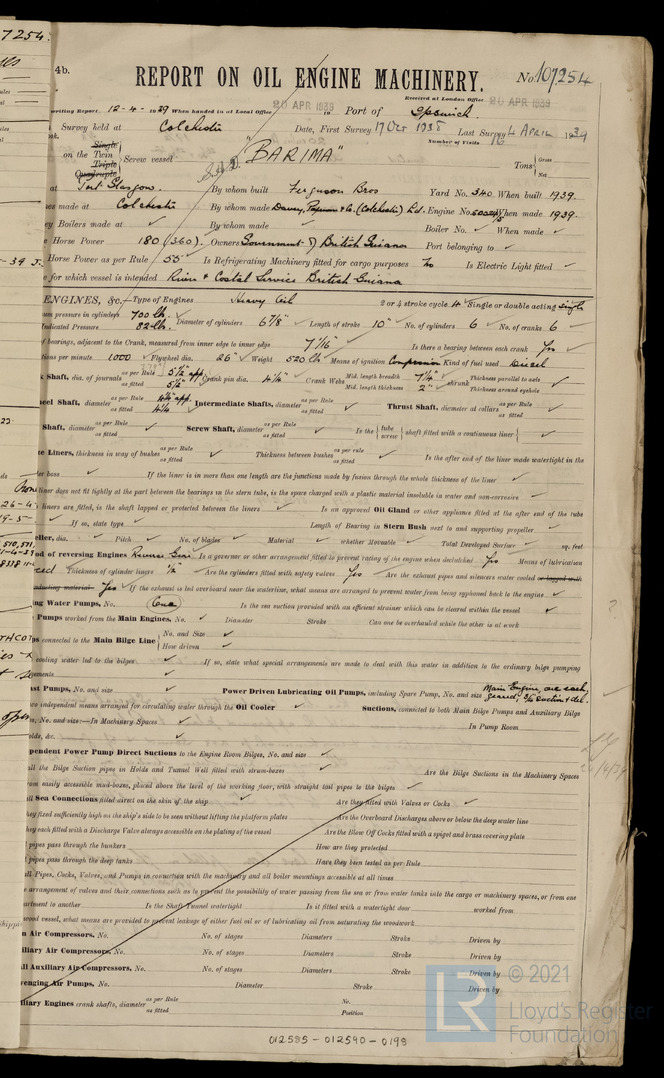 7254.
4b.
REPORT ON OIL ENGINE MACHINERY.
No. 107254
Received at London Office 20 APR 1939
writing Report. 12-4-1939 When handed in at Local Office 20 APR 1939 Port of Ipswich.
Survey held at Colchester Date, First Survey 17 Oct 1938 Last Survey 4 APRIL 1939
Number of Visits 16
Single
on the Twin
Triple
Quadruple
Screw vessel "BARIMA" Tons Gross Net
at Port Glasgow. By whom built Ferguson Bros Yard No. 340 When built 1939.
es made at Colchester By whom made Davey, Paxman & Co. (Colchester) Ltd. Engine No. When made 1939.
ey Boilers made at ✓ By whom made ✓ Boiler No. ✓ When made ✓
e Horse Power 180 (360). Owners Government of British Guiana Port belonging to ✓
Horse Power as per Rule 55 Is Refrigerating Machinery fitted for cargo purposes No Is Electric Light fitted ✓
e for which vessel is intended River & Costal Service British Guiana
ENGINES, &c.—Type of Engines Heavy Oil 2 or 4 stroke cycle 4 Single or double acting single
um pressure in cylinders 700 lb. Diameter of cylinders 6 7/8" Length of stroke 10" No. of cylinders 6 No. of cranks 6
Indicated Pressure 82 lb.
of bearings, adjacent to the Crank, measured from inner edge to inner edge 7 1/16" Is there a bearing between each crank Yes
tions per minute 1000 Flywheel dia. 26" Weight 520 lbs Means of ignition Compression Kind of fuel used Diesel
k Shaft, dia. of journals as per Rule 5 1/2" app. as fitted 5 1/2" Crank pin dia. 4 1/4" Crank Webs Mid. length breadth 7 1/4" Mid. length thickness 2" shrunk Thickness parallel to axis Thickness around eyehole
eel Shaft, diameter as per Rule as fitted Intermediate Shafts, diameter as per Rule as fitted Thrust Shaft, diameter at collars as per Rule as fitted
Shaft, diameter as per Rule as fitted Screw Shaft, diameter as per Rule as fitted Is the tube screw shaft fitted with a continuous liner
e Liners, thickness in way of bushes as per Rule as fitted Thickness between bushes as per rule as fitted Is the after end of the liner made watertight in the
ller boss ✓ If the liner is in more than one length are the junctions made by fusion through the whole thickness of the liner ✓
liner does not fit tightly at the part between the bearings in the stern tube, is the space charged with a plastic material insoluble in water and non-corrosive ✓
liners are fitted, is the shaft lapped or protected between the liners ✓ Is an approved Oil Gland or other appliance fitted at the after end of the tube
If so, state type ✓ Length of Bearing in Stern Bush next to and supporting propeller ✓
eller, dia. ✓ Pitch ✓ No. of blades ✓ Material ✓ whether Moveable ✓ Total Developed Surface ✓ sq. feet
od of reversing Engines Reverse Gear Is a governor or other arrangement fitted to prevent racing of the engine when declutched Yes Means of lubrication
ced Thickness of cylinder liners 1/2" Are the cylinders fitted with safety valves Yes Are the exhaust pipes and silencers water cooled or lagged with
nducting material Yes If the exhaust is led overboard near the waterline, what means are arranged to prevent water from being syphoned back to the engine ✓
ng Water Pumps, No. One Is the sea suction provided with an efficient strainer which can be cleared within the vessel ✓
Pumps worked from the Main Engines, No. ✓ Diameter Stroke Can one be overhauled while the other is at work
ps connected to the Main Bilge Line No. and Size ✓ How driven ✓
cooling water led to the bilges ✓ If so, state what special arrangements are made to deal with this water in addition to the ordinary bilge pumping
ements ✓
ast Pumps, No. and size ✓ Power Driven Lubricating Oil Pumps, including Spare Pump, No. and size Main Engine, one each, geared, suction & del.
wo independent means arranged for circulating water through the Oil Cooler ✓ Suctions, connected to both Main Bilge Pumps and Auxiliary Bilge
s, No. and size:—In Machinery Spaces ✓ In Pump Room
olds, &c. ✓
pendent Power Pump Direct Suctions to the Engine Room Bilges, No. and size ✓
all the Bilge Suction pipes in Holds and Tunnel Well fitted with strum-boxes ✓ Are the Bilge Suctions in the Machinery Spaces
om easily accessible mud-boxes, placed above the level of the working floor, with straight tail pipes to the bilges ✓
ll Sea Connections fitted direct on the skin of the ship ✓ Are they fitted with Valves or Cocks ✓
hey fixed sufficiently high on the ship's side to be seen without lifting the platform plates Are the Overboard Discharges above or below the deep water line
hey each fitted with a Discharge Valve always accessible on the plating of the vessel Are the Blow Off Cocks fitted with a spigot and brass covering plate
pipes pass through the bunkers How are they protected
pipes pass through the deep tanks Have they been tested as per Rule
all Pipes, Cocks, Valves, and Pumps in connection with the machinery and all boiler mountings accessible at all times
e arrangement of valves and their connections such as to prevent the possibility of water passing from the sea or from water tanks into the cargo or machinery spaces, or from one
artment to another Is the Shaft Tunnel watertight Is it fitted with a watertight door worked from
wood vessel, what means are provided to prevent leakage of either fuel oil or of lubricating oil from saturating the woodwork
n Air Compressors, No. No. of stages Diameters Stroke Driven by
iliary Air Compressors, No. No. of stages Diameters Stroke Driven by
ll Auxiliary Air Compressors, No. No. of stages Diameters Stroke Driven by
venging Air Pumps, No. Diameter Stroke Driven by
iliary Engines crank shafts, diameter as per Rule as fitted No. Position
012585-012590-0198
LR © 2021
Lloyd's Register
Foundation